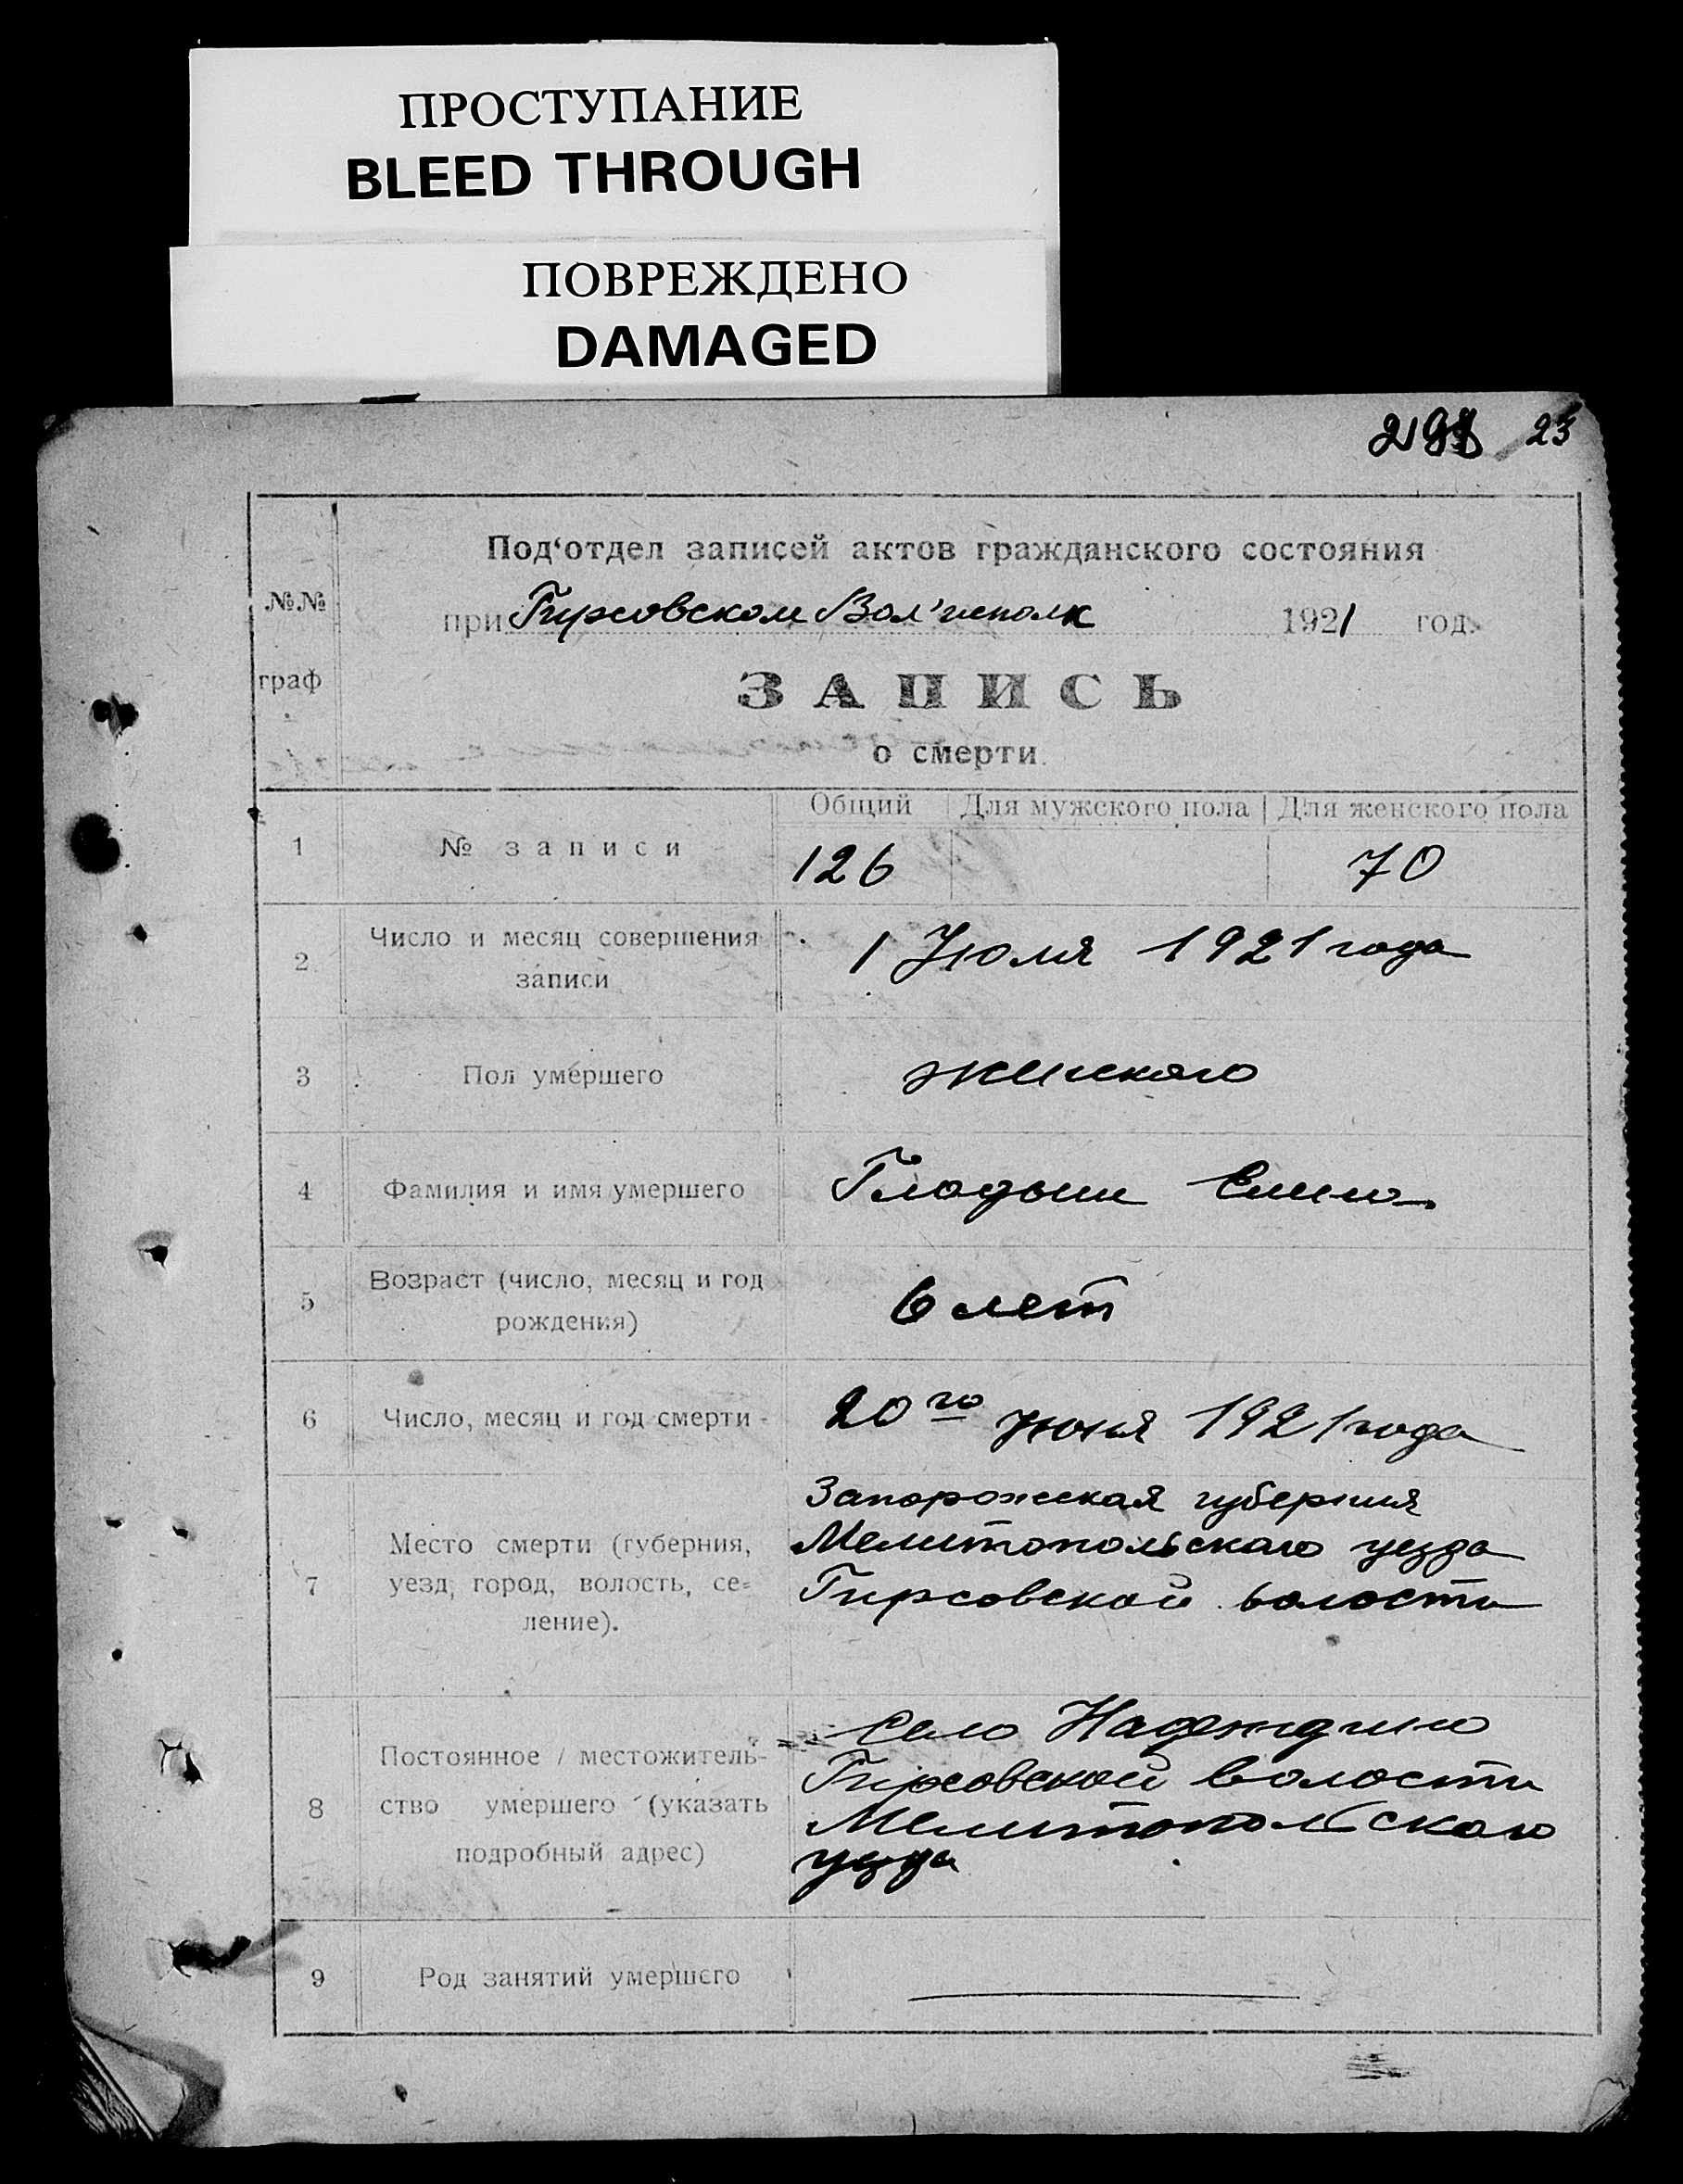 ПРОСТУПАНИЕ
BLEED THROUGH
ПОВРЕЖДЕНО
DAMAGED
23
№№
граф
Под‘отдел записей актов гражданского состояния
при Гирсовском Вол'исполк 1921 год.
ЗАПИСЬ
о смерти.
Общий Для мужского пола Для женского пола
1 № записи 126 70
2 Число и месяц совершения
записи
1 Июля 1921 года
3 Пол умершего женского
4 Фамилия и имя умершего Гладыш Елена
5 Возраст (число, месяц и год
рождения)
6 лет
6 Число, месяц и год смерти 20го июня 1921 года
7 Место смерти (губерния,
уезд, город, волость, се-
ление).
Запорожская губерния
Мелитопольского уезда
Гирсовской волости
8 Постоянное местожитель-
ство умершего (указать
подробный адрес)
село Надеждино
Гирсовской волости
Мелитопольского
уезда
9 Род занятий умершего